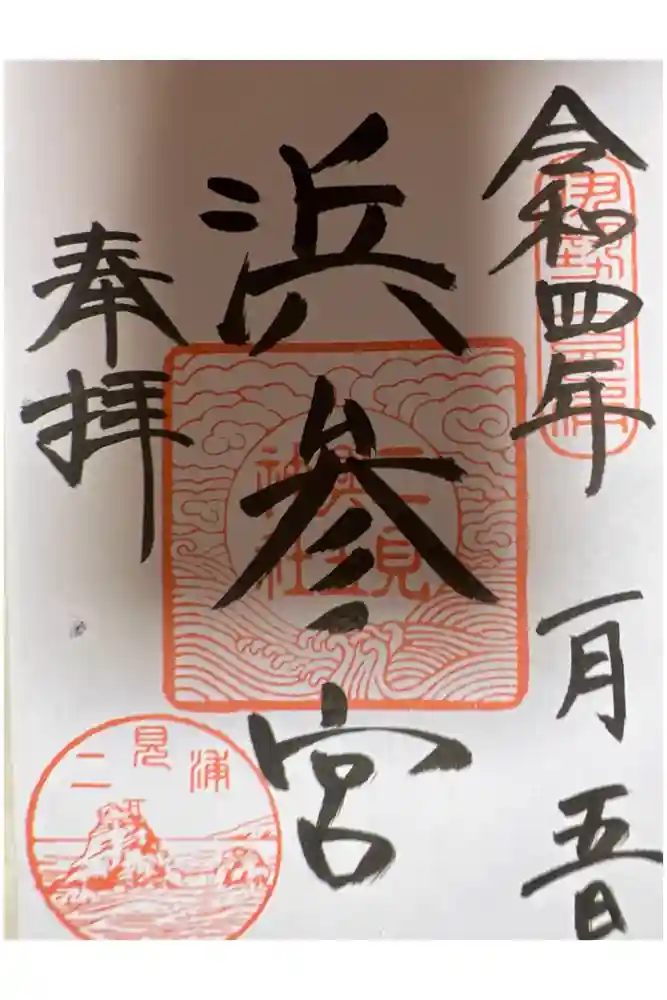 令和四年一月五日
伊勢二見浦
浜参宮
二見興玉神社
奉拝
二見浦